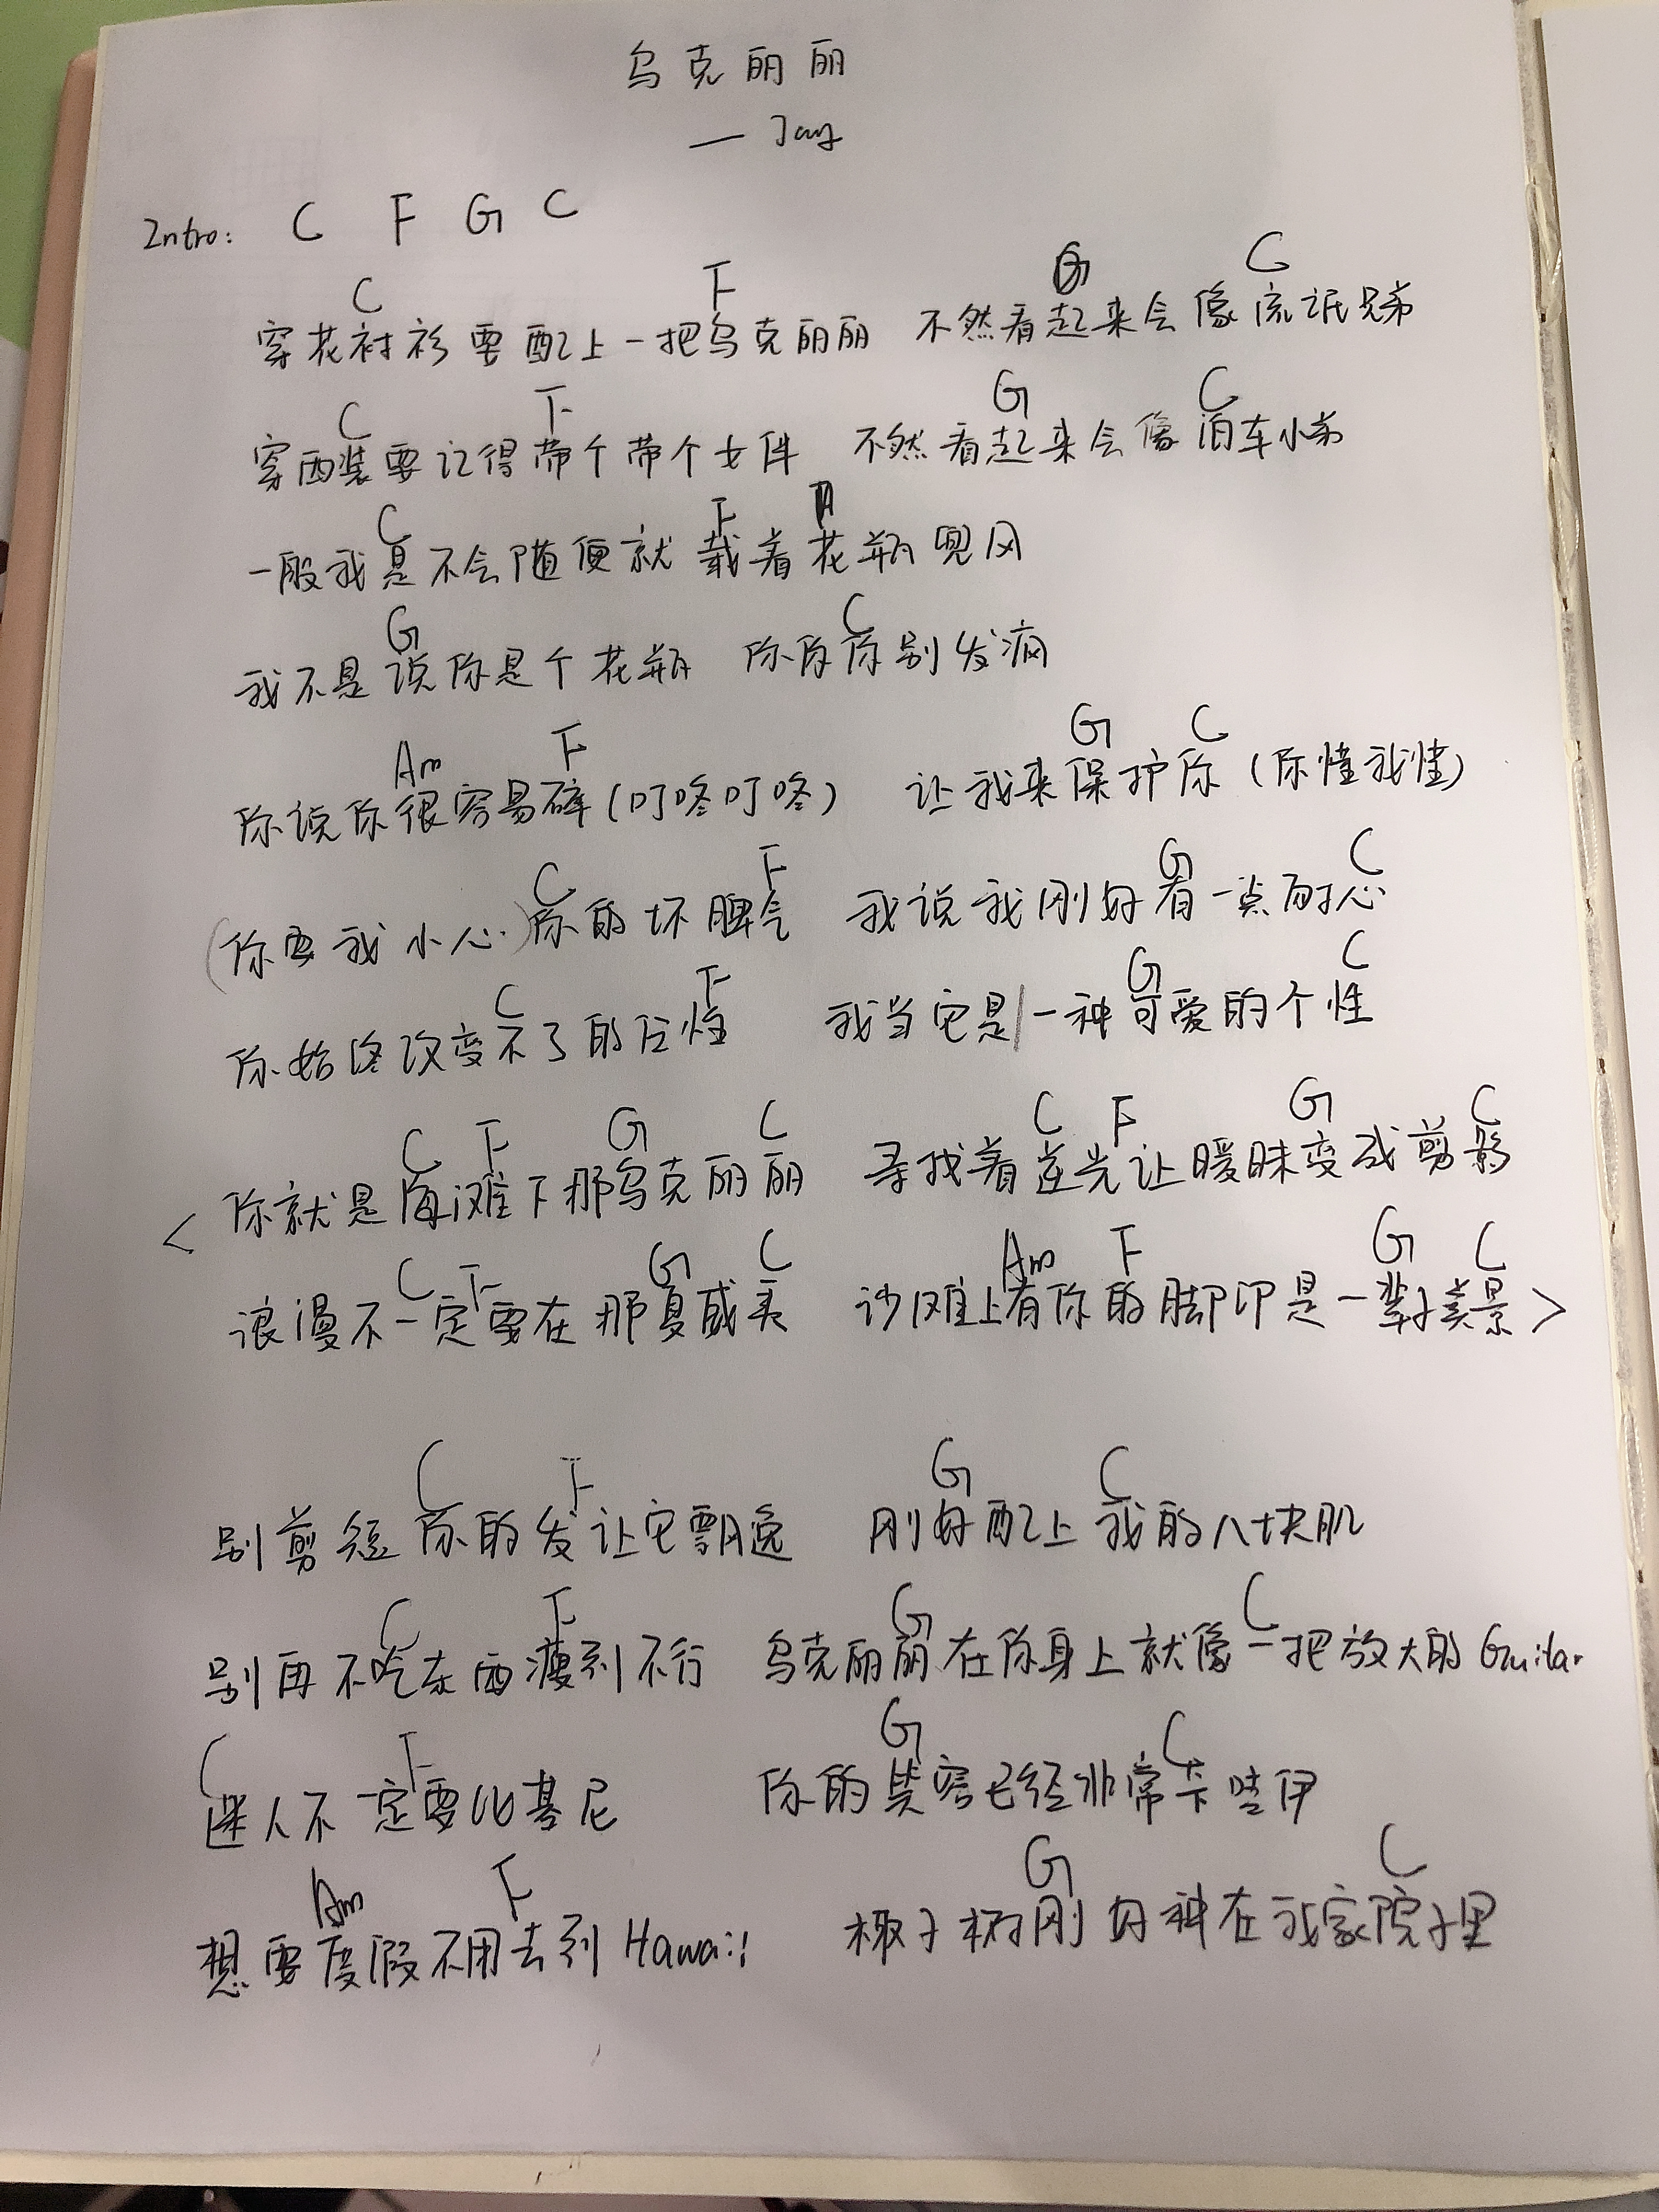 乌克丽丽
— Jay
Intro: C F G C
C F G C
穿花衬衫要配上一把乌克丽丽 不然看起来会像流氓兄弟
C F G C
穿西装要记得带个带个女伴 不然看起来会像泊车小弟
C F
一般我是不会随便就载着花瓶兜风
G C
我不是说你是个花瓶 你你别发疯
Am F G C
你说你很容易碎(叮咚叮咚) 让我来保护你(你懂我懂)
C F G C
(你要我小心)你的坏脾气 我说我刚好有一点耐心
C F G C
你始终改变不了的任性 我当它是|一种可爱的个性
C F G C C F G C
<你就是海滩下那乌克丽丽 寻找着逆光让暧昧变成剪影
C F G C Am F G C
浪漫不一定要在那夏威夷 沙滩上有你的脚印是一辈子美景>
C F G C
别剪短你的发让它飘逸 刚好配上我的八块肌
C F G C
别再不吃东西瘦到不行 乌克丽丽在你身上就像一把放大的Guitar
C F G C
迷人不一定要比基尼 你的笑容已经非常卡哇伊
Am F G C
想要度假不用去到Hawaii 椰子树刚好种在我家院子里